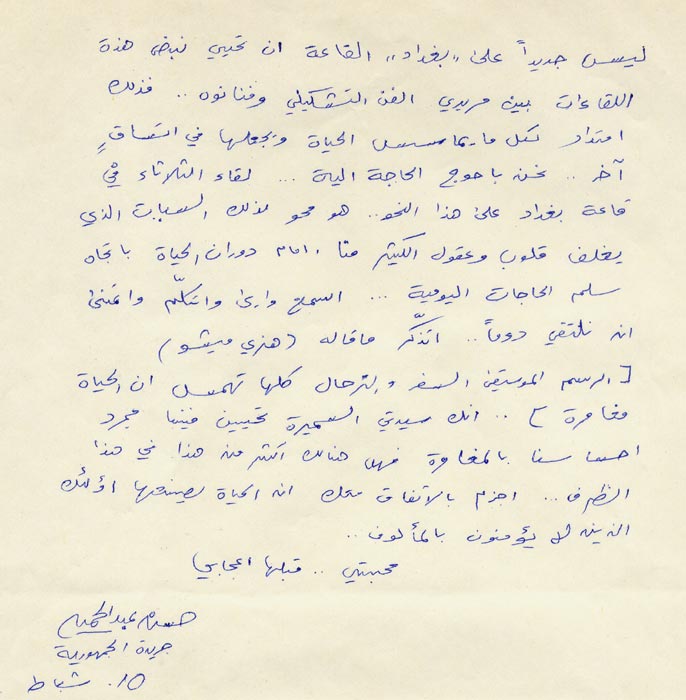 ليس جديداً على "بغداد" القاعة ان تحيي نبض هذه
اللقاءات بين مريدي الفن التشكيلي وفنانوه .. فذلك
امتداد لكل ما يتماس الحياة ويجعلها في اتساق
آخر .. نحن باحوج الحاجة اليه ... لقاء الثلاثاء في
قاعة بغداد على هذا النحو .. هو محو لذلك السبات الذي
يغلف قلوب وعقول الكثير منا امام دوران الحياة باتجاه
سلم الحاجات اليومية ... اسمع وارى واتكلّم واتمنى
ان نلتقي دوماً .. اتذكّر ما قاله (هنري ميشو)
[الرسم الموسيقى السفر والترحال كلها تهمس ان الحياة
مغامرة] .. انك سيدتي السميرة تحيين فينا مجرد
احساسنا بالمغامرة فهل هنالك اكثر من هذا في هذا
الظرف ... اجزم بالاتفاق معك ان الحياة يصنعها اولئك
الذين لا يؤمنون بالمألوف ..
محبتي .. قبلها اعجابي
حسام عبد الحميد
جريدة الجمهورية
١٥. شباط